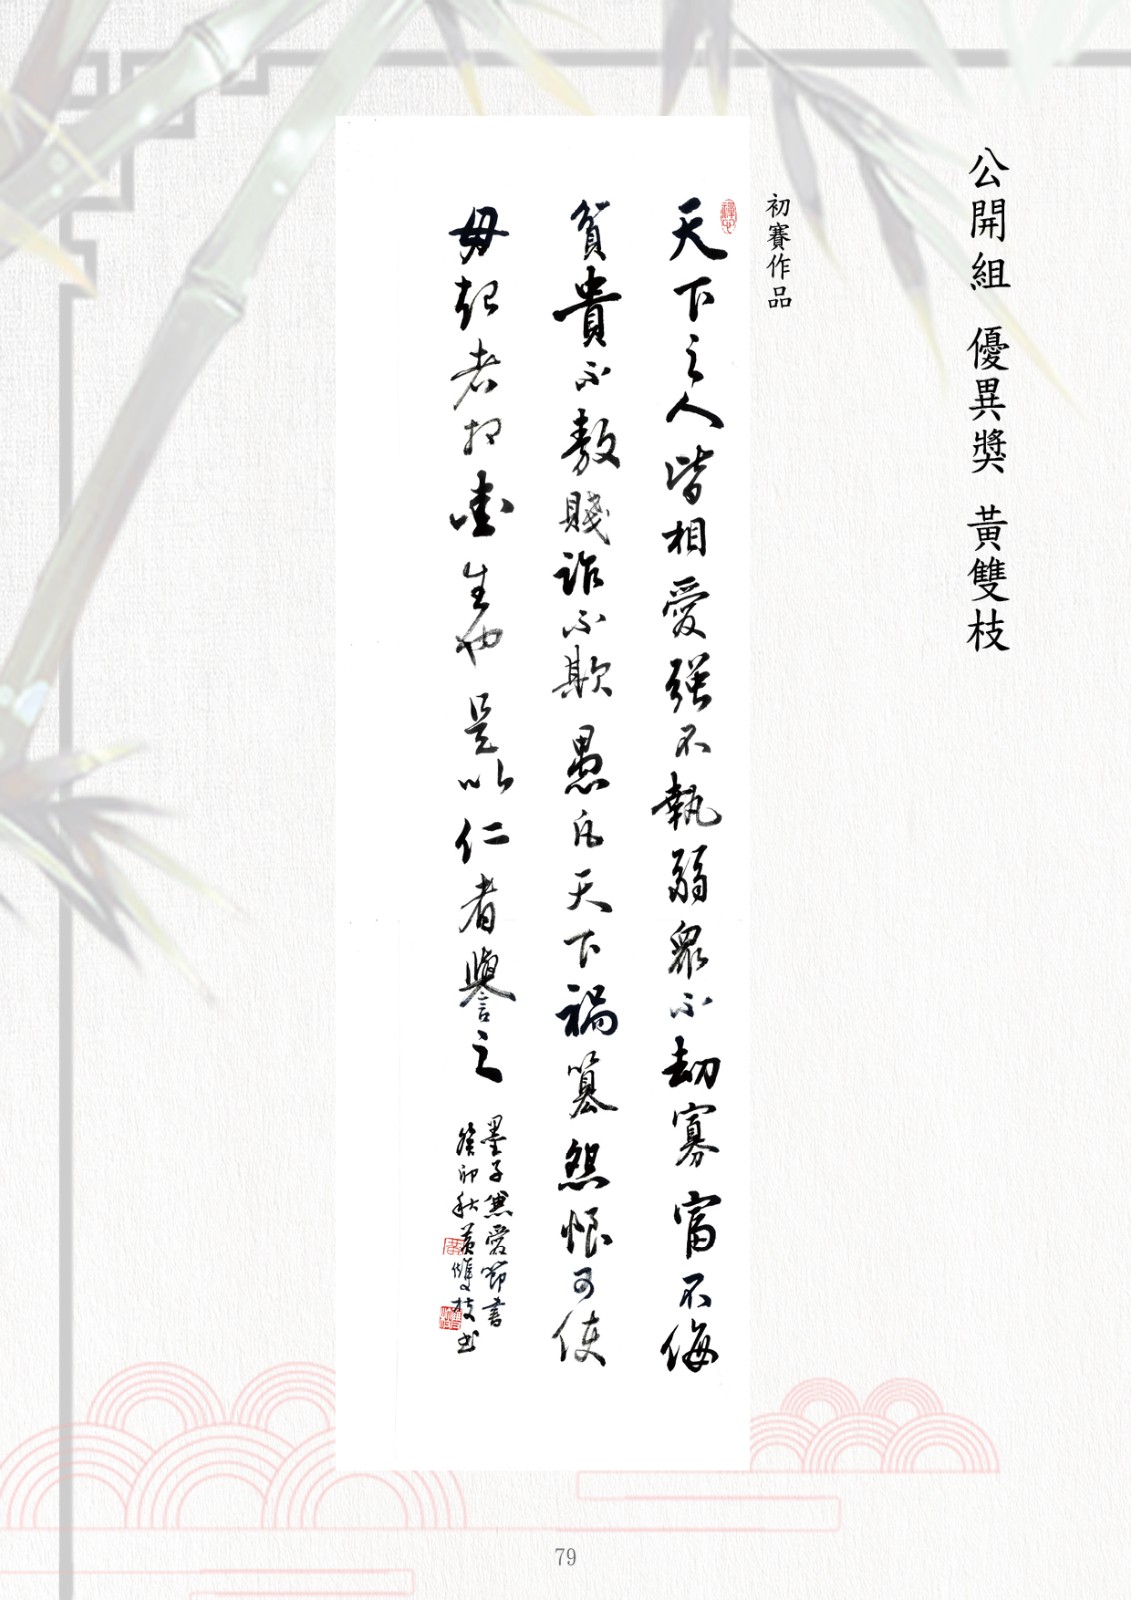 公開組 優異獎 黃雙枝
初賽作品
天下之人皆相愛强不執弱眾不劫寡富不侮
貧貴不敖賤詐不欺愚凡天下禍篡怨恨可使
毋起者相愛生也是以仁者譽之
墨子兼愛節書
癸卯秋黃雙枝書
79